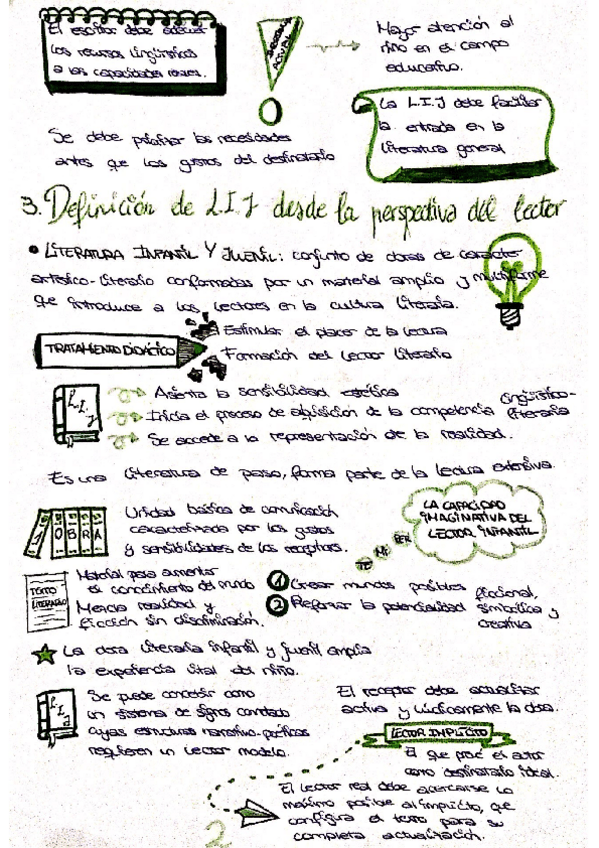 El escritor debe adecuar
los recursos lingüísticos
a las capacidades reales.
ACTUAL
Mayor atención al
niño en el campo
educativo.
La L.I.J debe facilitar
la entrada en la
literatura general
Se debe priorizar las necesidades
antes que los gustos del destinatario
3. Definición de L.I.J desde la perspectiva del lector
• LITERATURA INFANTIL Y JUVENIL: conjunto de obras de carácter
artístico-literario conformadas por un material amplio y multiforme
que introduce a los lectores en la cultura literaria.
TRATAMIENTO DIDÁCTICO
Estimular el placer de la lectura
Formación del lector literario
L.I.J
Asienta la sensibilidad estética
Inicia el proceso de adquisición de la competencia lingüístico-literaria
Se accede a la representación de la realidad.
Es una literatura de paso, forma parte de la lectura extensiva.
1 OBRA
Unidad básica de comunicación
caracterizada por los gustos
y sensibilidades de los receptores.
LA CAPACIDAD
IMAGINATIVA DEL
LECTOR INFANTIL
TEXTO
LITERARIO
Material para aumentar
el conocimiento del mundo
Mezcla realidad y
ficción sin discriminación.
1 Crear mundos posibles
2 Reforzar la potencialidad ficcional,
simbólica y
creativa
La obra literaria infantil y juvenil amplía
la experiencia vital del niño.
L.I.J
Se puede concebir como
un sistema de signos connotado
cuyas estructuras narrativo-poéticas
requieren un lector modelo.
El receptor debe actualizar
activa y lúdicamente la obra.
LECTOR IMPLÍCITO
El que prevé el autor
como destinatario ideal.
El lector real debe acercarse lo
máximo posible al implícito, que
configura el texto para su
completa actualización.
2